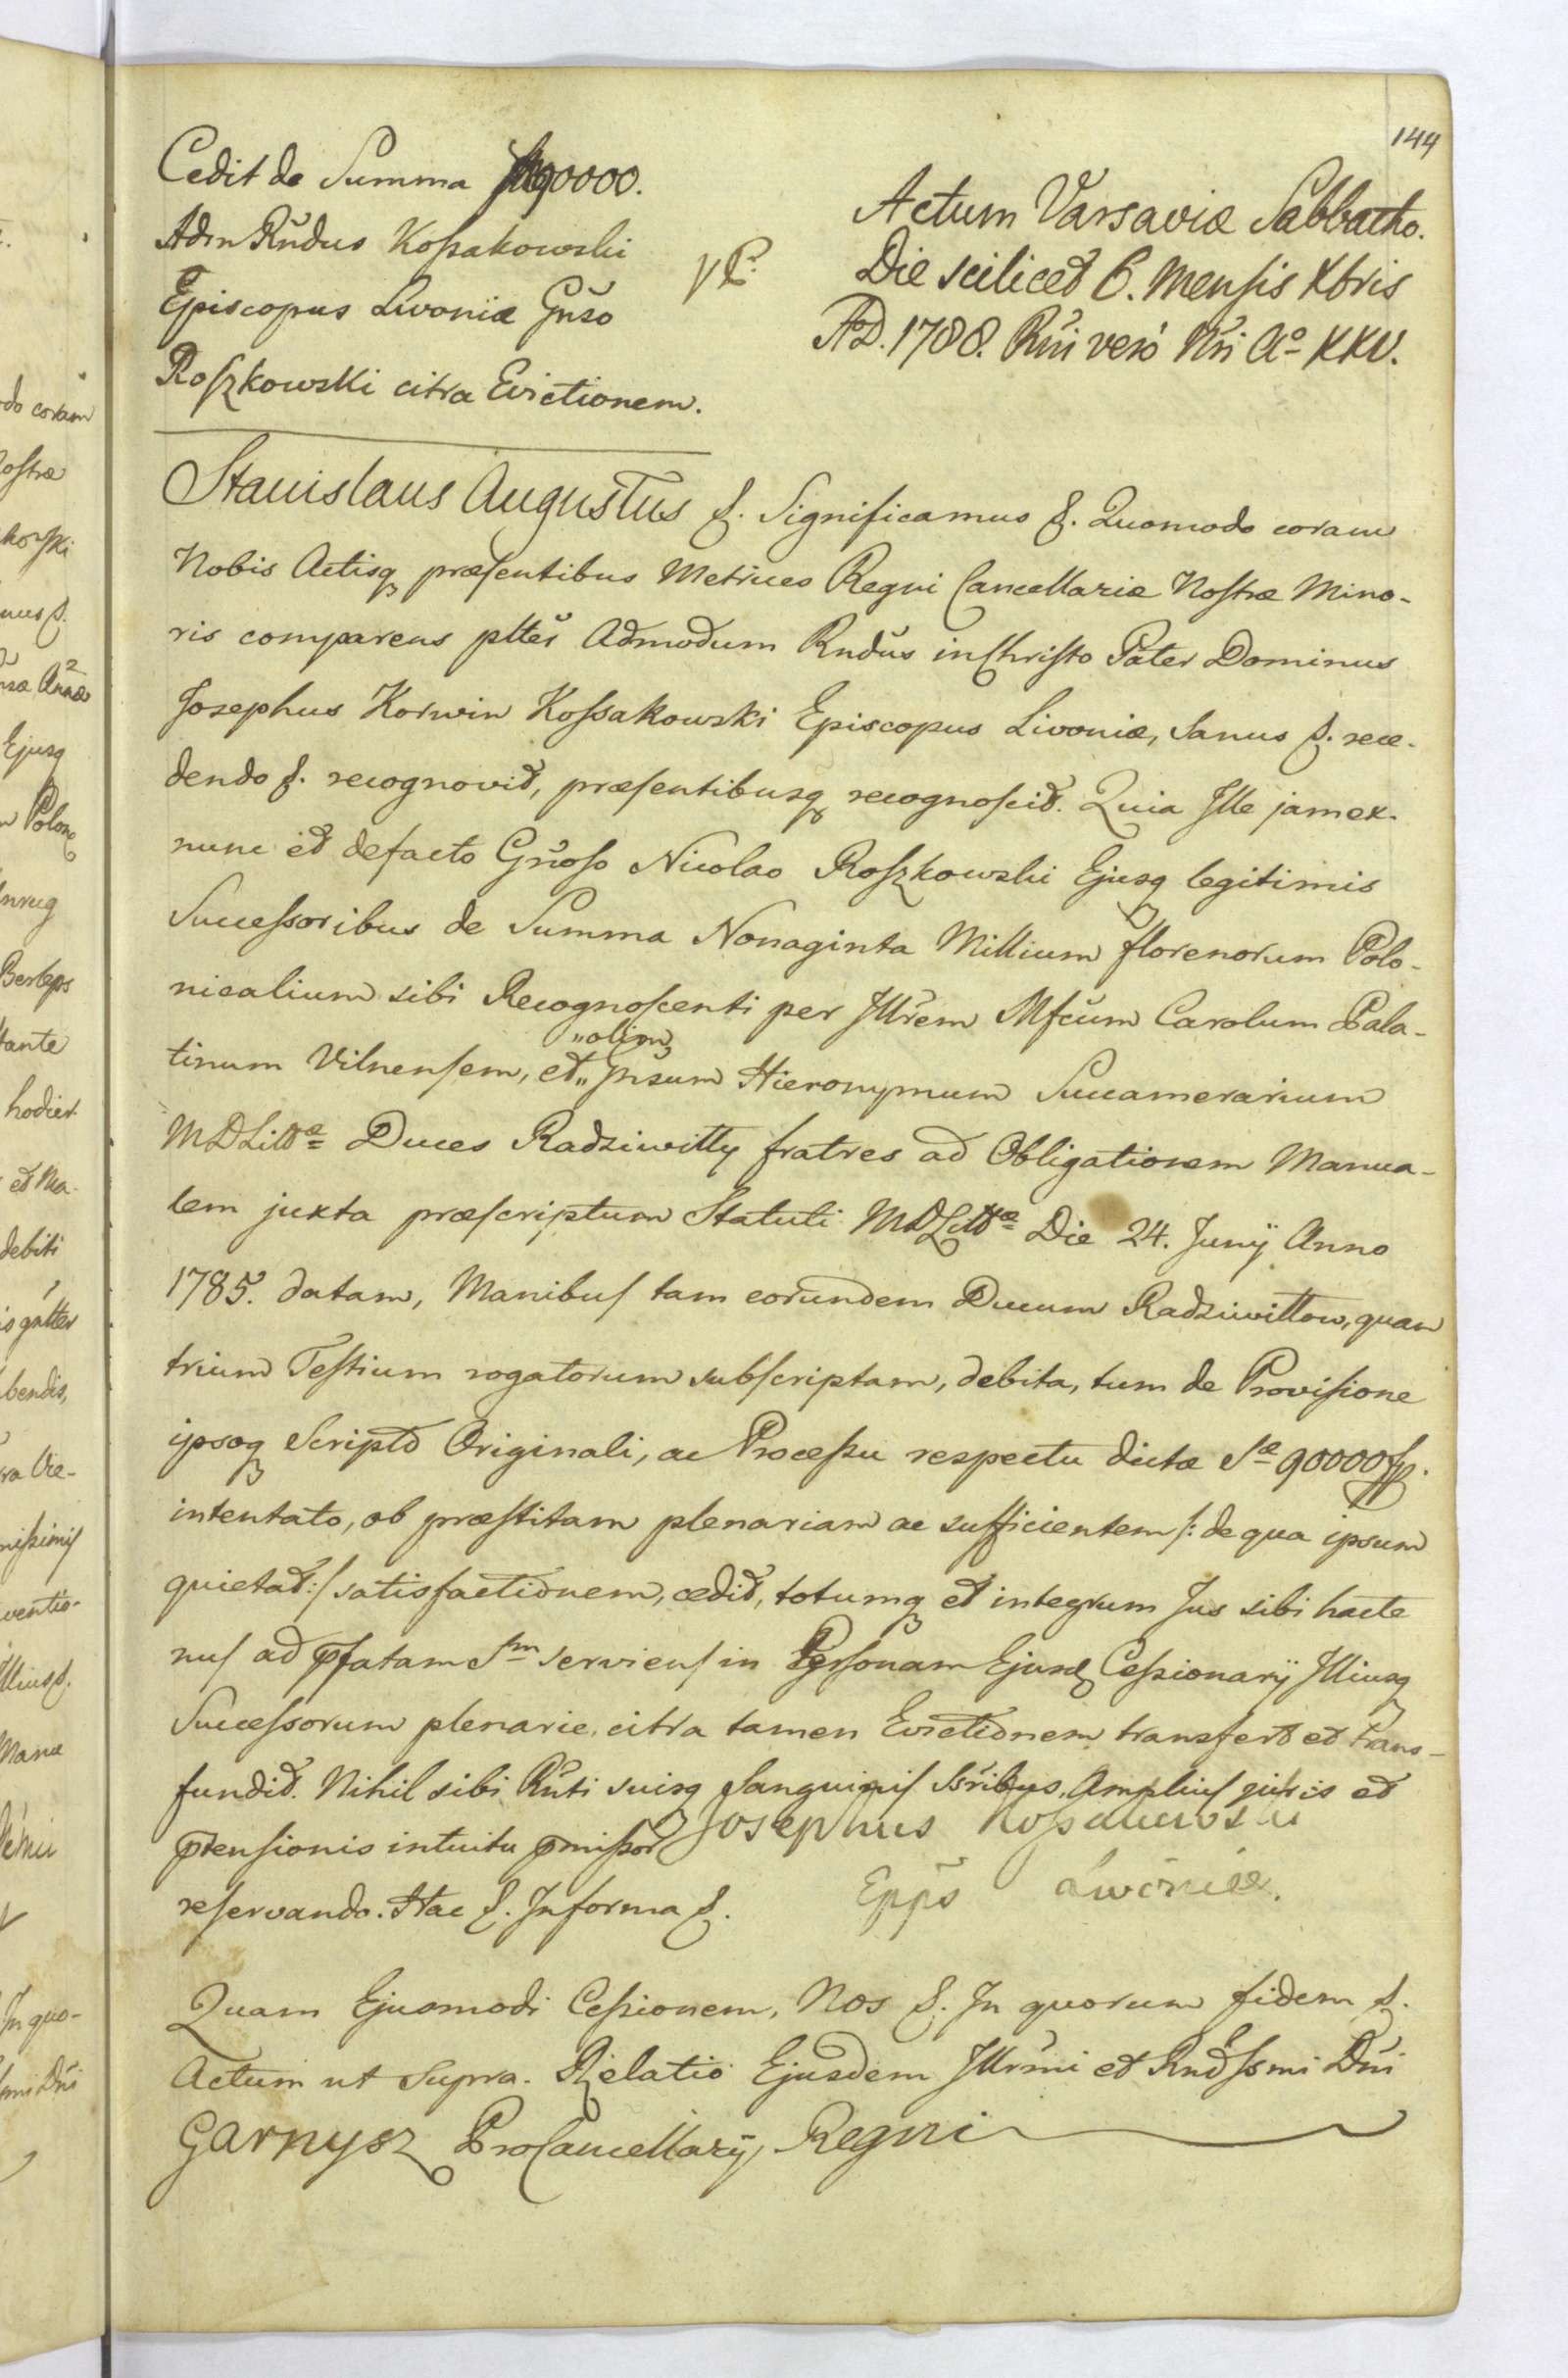 144
Cedit de Summa 90000.
Adm Rndus Kossakowski
Episcopus Livoniæ Gnso
Roszkowski citra Evictionem.
Actum Varsaviæ Sabbatho.
Die scilicet 6. Mensis Xbris
AD. 1788. Rni vero Nri Aº XXV.
Stanislaus Augustus &. Significamus &. Quomodo coram
Nobis Actisq præsentibus Metrices Regni Cancellariæ Nostræ Mino-
ris comparens pltes Admodum Rndus in Christo Pater Dominus
Josephus Korwin Kossakowski Episcopus Livoniæ, Sanus &. rece-
dendo &. recognovit, præsentibusq recognoscit. Quia Ille jam ex-
nunc et defacto Gnoso Nicolao Roszkowski Ejusq legitimis
Successoribus de Summa Nonaginta Millium florenorum Polo-
nicalium sibi Recognoscenti per Illrem Mfcum Carolum Pala-
tinum Vilnensem, et „olim„ Gnsum Hieronymum Succamerarium
MDLittæ Duces Radziwiłły fratres ad Obligationem Manua-
lem juxta præscriptum Statuti MDLittæ Die 24. Junij Anno
1785. datam, Manibus tam eorundem Ducum Radziwiłłow, quam
trium Testium rogatorum subscriptam, debita, tum de Provisione
ipsoq Scripto Originali, ac Processu respectu dictæ Sæ 90000 fp.
intentato, ob præstitam plenariam ac sufficientem /: de qua ipsum
quietat :/ satisfactionem, cedit, totumq et integrum Jus sibi hacte
nus ad pfatam Sm serviens in Personam Ejusd Cessionarij Illiusq
Successorum plenarie, citra tamen Evictionem transfert et trans-
fundit. Nihil sibi Rnti suisq Sanguinis Ssribus, Amplius juris et
ptensionis intuitu pmissor Josephus Kossakowski
reservando. Hac &. In forma &. Epps Livoniæ.
Quam Ejusmodi Cessionem, Nos &. In quorum fidem &.
Actum ut Supra. Relatio Ejusdem Illrmi et Rndssmi Dni
Garnysz ProCancellarij Regni